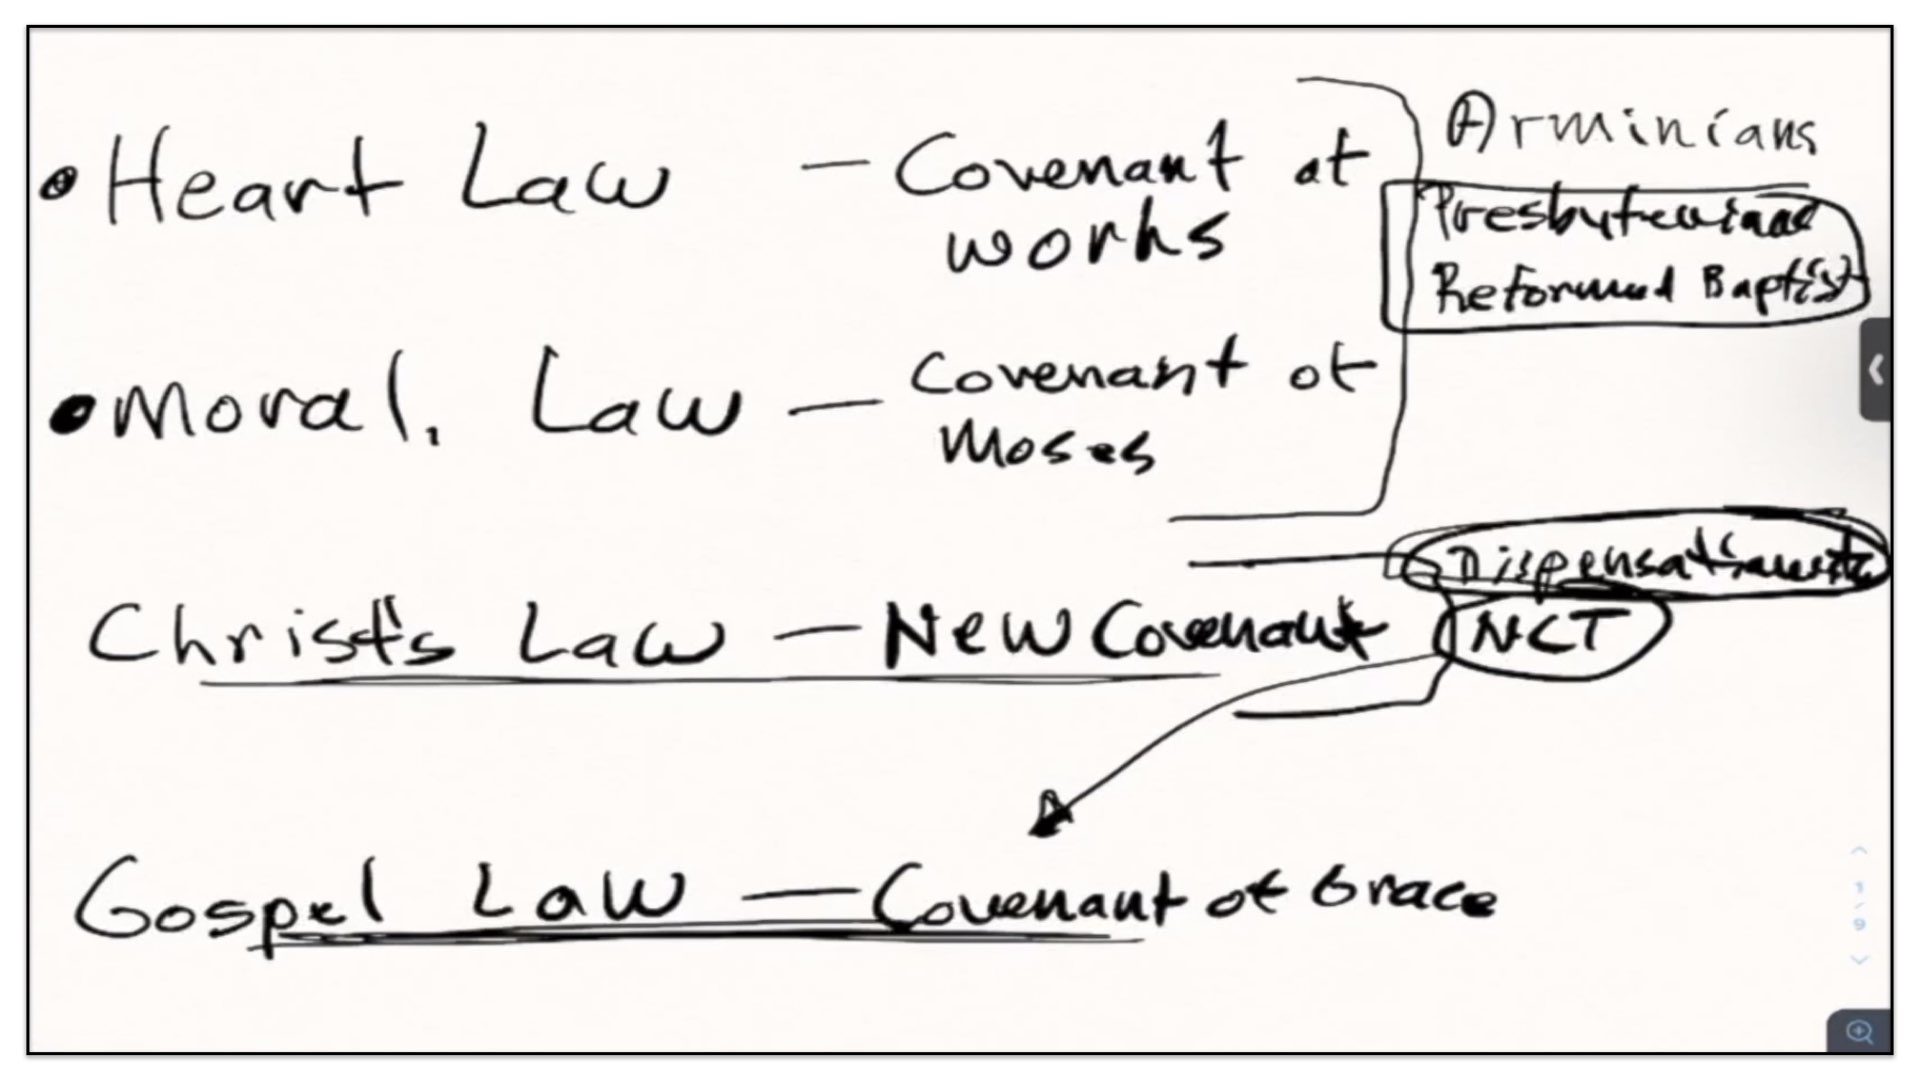 • Heart Law — Covenant of
works
• Moral. Law — Covenant of
Moses
Christ's Law — New Covenant
Gospel Law — Covenant of Grace
Arminians
Reformed Baptist
NCT